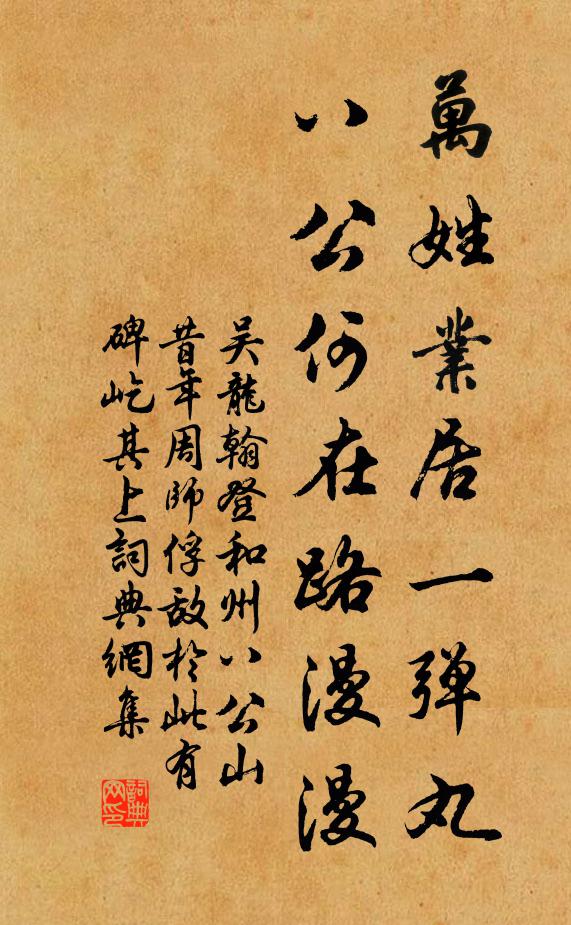 萬姓業居一弹丸
八公何在路漫漫
吴龍翰登和州八公山
昔年周師俘敌於此有
碑屹其上詞典網集
詞典网印